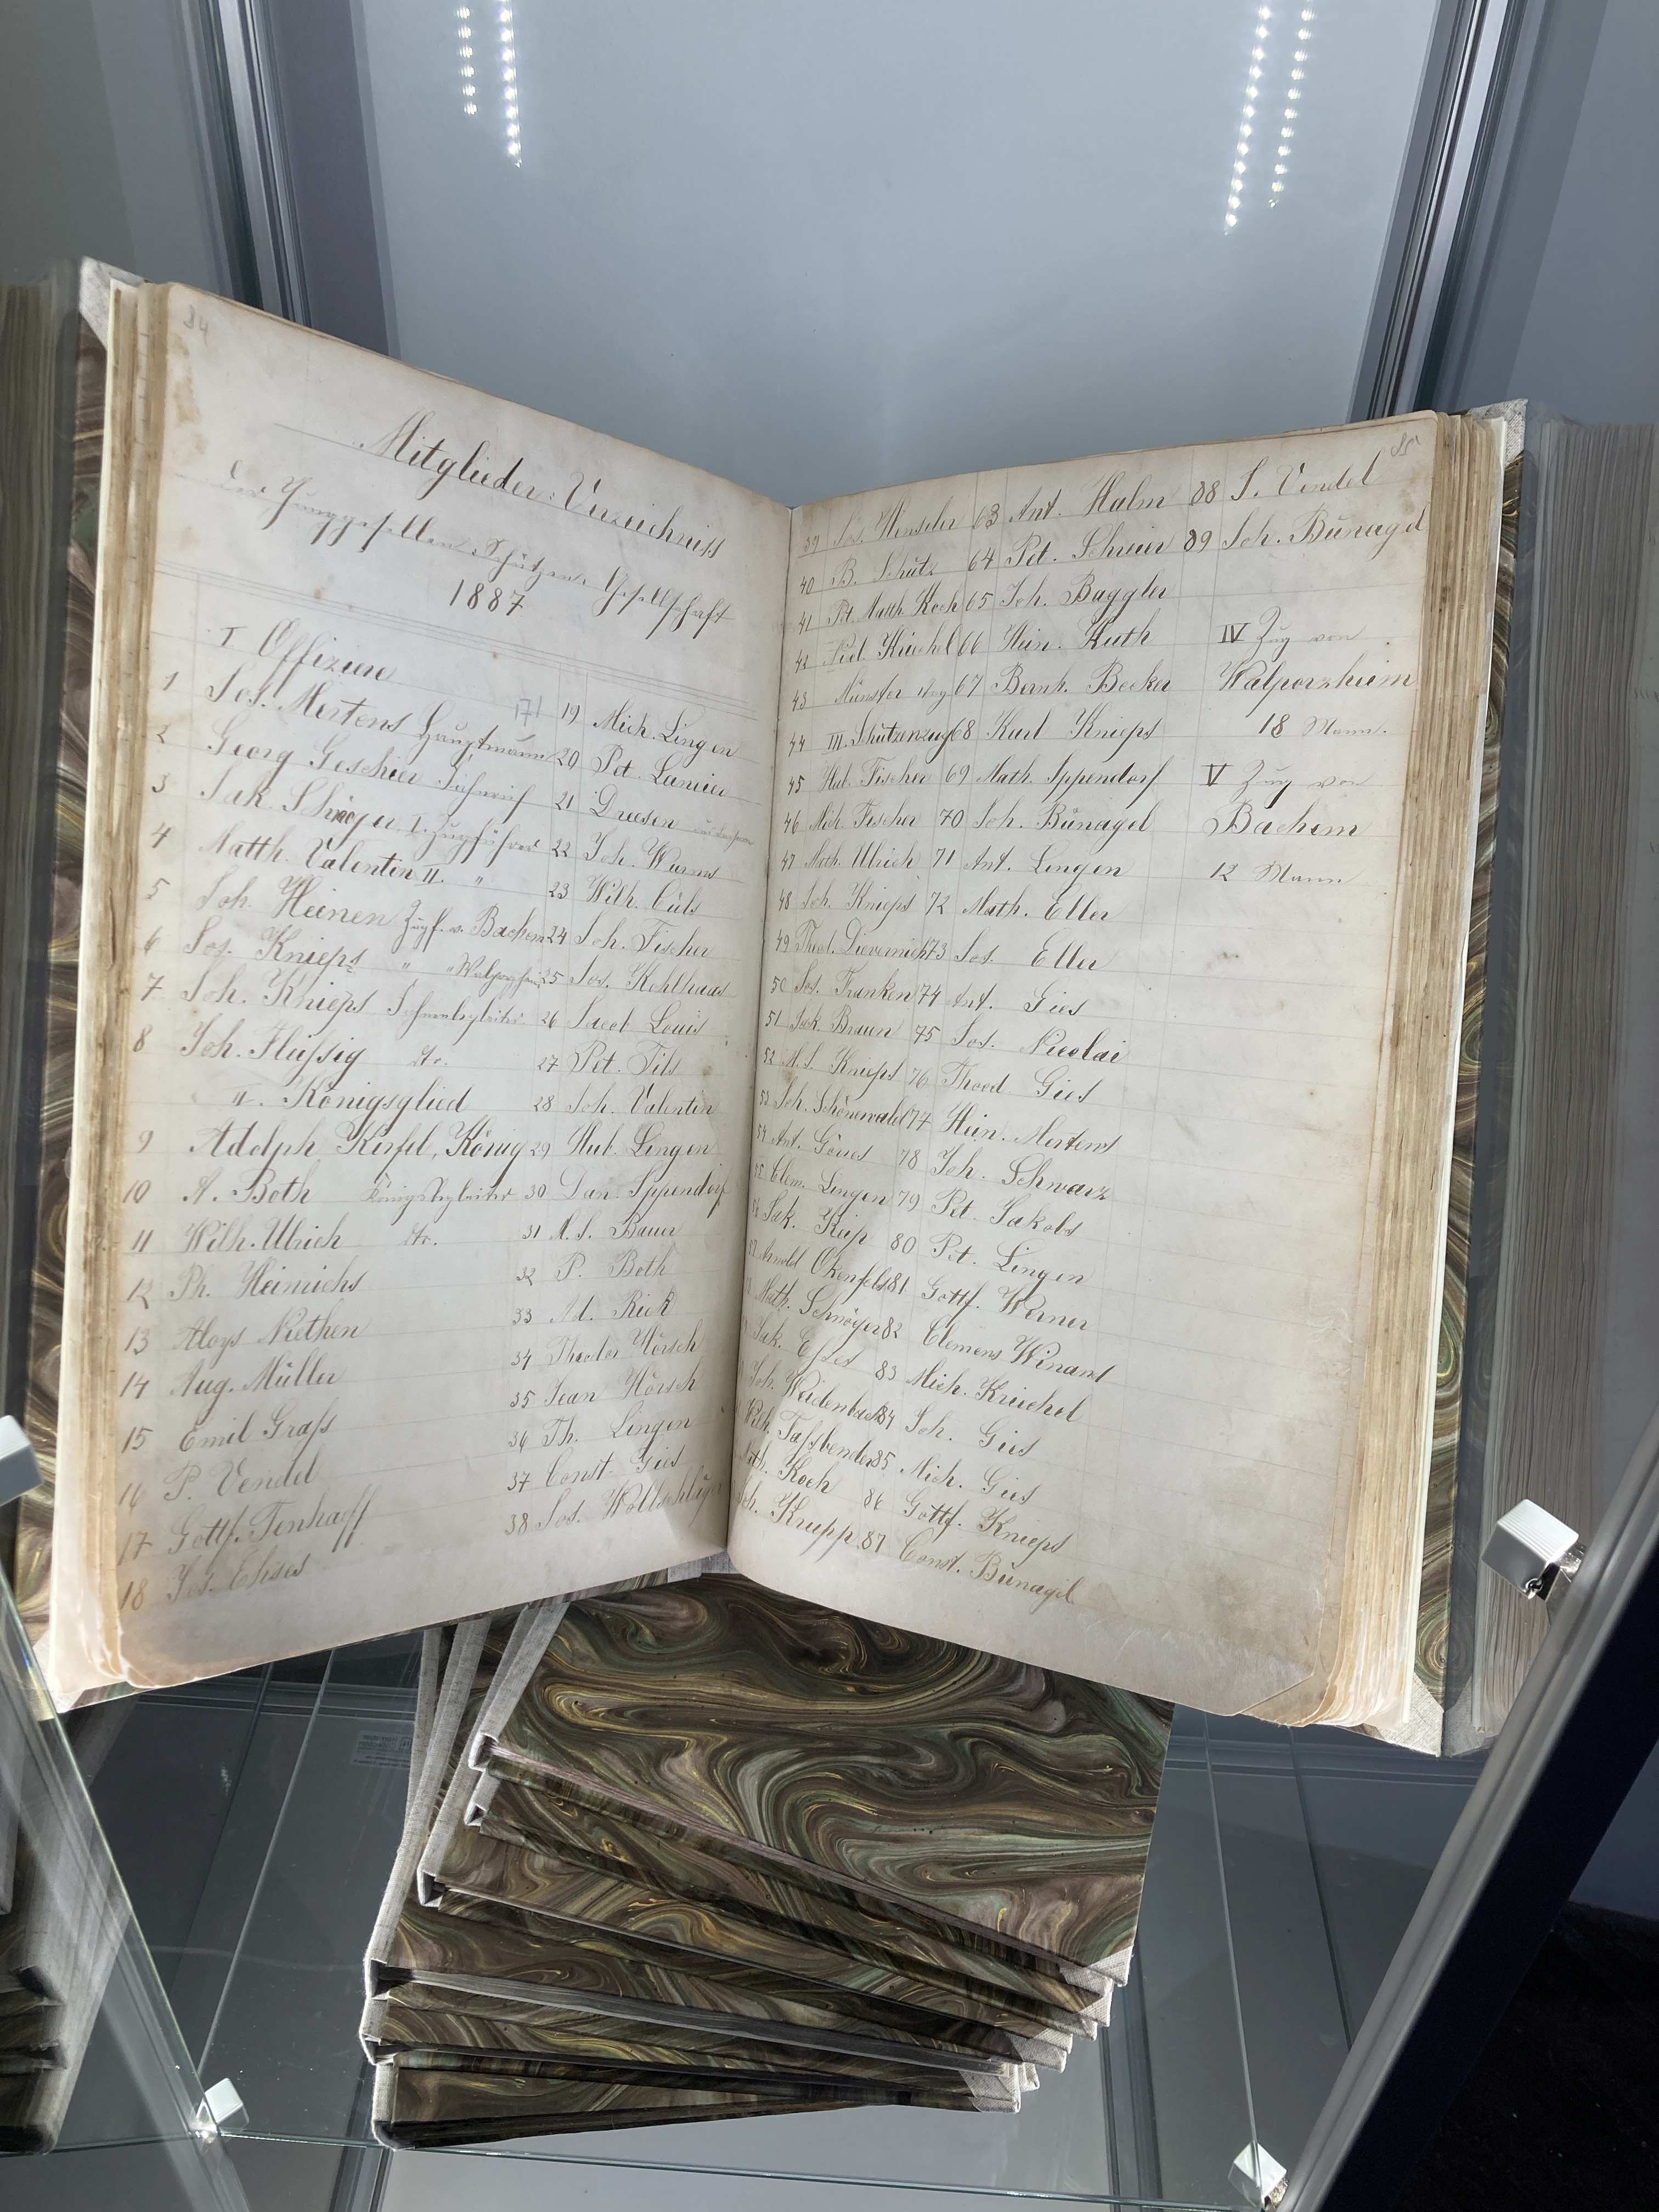 84
Mitglieder-Verzeichniss
der Junggesellen-Schützen-Gesellschaft
1887
I Offiziere
1 Jos. Mertens Hauptmann
2 Georg Geschier Fähnrich
3 Jak. Schnöger I. Zugführer
4 Matth. Valentin II. "
5 Joh. Heinen Zugf. v. Bachem
6 Jos. Knieps " " Walporzheim
7 Joh. Knieps Fahnenbegleiter
8 Joh. Flüßig dto.
II. Königsglied
9 Adolph Kerfel, König
10 A. Both Königsbegleiter
11 Wilh. Ulrich dto.
12 Ph. Heinrichs
13 Aloys Niethen
14 Aug. Müller
15 Emil Graß
16 P. Vendel
17 Gottf. Tenhaff
18 Jos. Ehses
171
19 Mich. Lingen
20 Pet. Lanier
21 Druesen
22 Joh. Wurms
23 Wilh. Cüls
24 Joh. Fischer
25 Jos. Kohlhaas
26 Jacob Louis
27 Pet. Fils
28 Joh. Valentin
29 Hub. Lingen
30 Dan. Ippendorf
31 M. J. Bauer
32 P. Both
33 Ad. Rick
34 Theodor Hörsch
35 Jean Hörsch
36 Th. Lingen
37 Const. Gies
38 Jos. Wollschläger
85
39 Jos. Henseler
40 B. Schütz
41 Pet. Math. Koch
42 Kriechel
43 Münster
44 III. Schützenzug
45 Hub. Fischer
46 Mich. Fischer
47 Math. Ulrich
48 Joh. Knieps
49 Theod. Dievernich
50 Jos. Franken
51 Jak. Braun
52 M. J. Knieps
53 Joh. Schönewald
54 Ant. Göres
55 Clem. Lingen
Jak. Kup
Arnold Okenfels
Math. Schnöger
Jak. Esser
Joh. Weidenbach
Wilh. Faßbender
Math. Koch
Joh. Krupp
63 Ant. Halm
64 Pet. Schreier
65 Joh. Baggler
66 Hein. Huth
67 Bernh. Becker
68 Karl Knieps
69 Math. Ippendorf
70 Joh. Bünagel
71 Ant. Lingen
72 Math. Eller
73 Jos. Eller
74 Ant. Gies
75 Jos. Nicolai
76 Theod Gies
77 Hein. Mertens
78 Joh. Schwarz
79 Pet. Jakobs
80 Pet. Lingen
81 Gottf. Werner
82 Clemens Winand
83 Mich. Kriechel
84 Joh. Gies
85 Mich. Gies
86 Gottf. Knieps
87 Const. Bünagel
88 J. Vendel
89 Joh. Bünagel
IV Zug von
Walporzheim
18 Mann.
V Zug von
Bachem
12 Mann